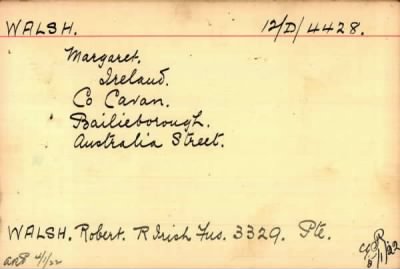 WALSH. 12/D/4428.
Margaret.
Ireland.
Co Cavan.
Bailieborough.
Australia Street.
WALSH. Robert. R Irish Fus. 3329. Pte.
5/1/22
4/1/22